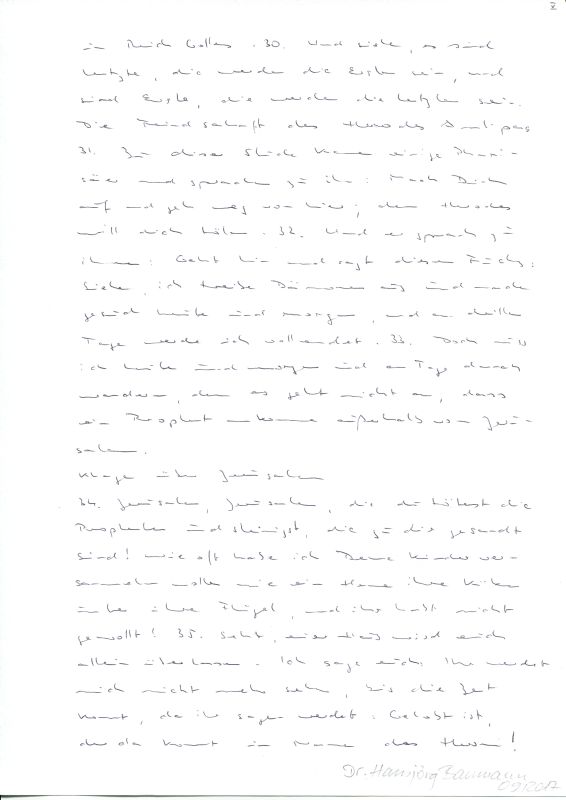 im Reich Gottes. 30. Und siehe, es sind
letzte, die werden die Erste sein, und
sind Erste, die werden die letzten sein.
Die Feindschaft des Herodes Antipas
31. Zu dieser Stunde kamen einige Phari-
säer und sprachen zu ihm: Mach Dich
auf und geh weg von hier; denn Herodes
will dich töten. 32. Und er sprach zu
ihnen: Geht hin und sagt diesem Fuchs:
Siehe, ich treibe Dämonen aus und mache
gesund heute und morgen, und am dritten
Tage werde ich vollendet. 33. Doch muss
ich heute und morgen und am Tage danach
wandern, denn es geht nicht an, dass
ein Prophet umkomme außerhalb von Jeru-
salem.
Klage über Jerusalem
34. Jerusalem, Jerusalem, die du tötest die
Propheten und steinigst, die zu dir gesandt
sind! Wie oft habe ich Deine Kinder ver-
sammeln wollen wie eine Henne ihre Küken
unter ihre Flügel, und ihr habt nicht
gewollt! 35. Seht, euer Haus wird euch
allein überlassen. Ich sage euch: Ihr werdet
mich nicht mehr sehen, bis die Zeit
kommt, da ihr sagen werdet: Gelobt ist,
der da kommt im Namen des Herrn!
Dr. Hansjörg Baumann
09/2017